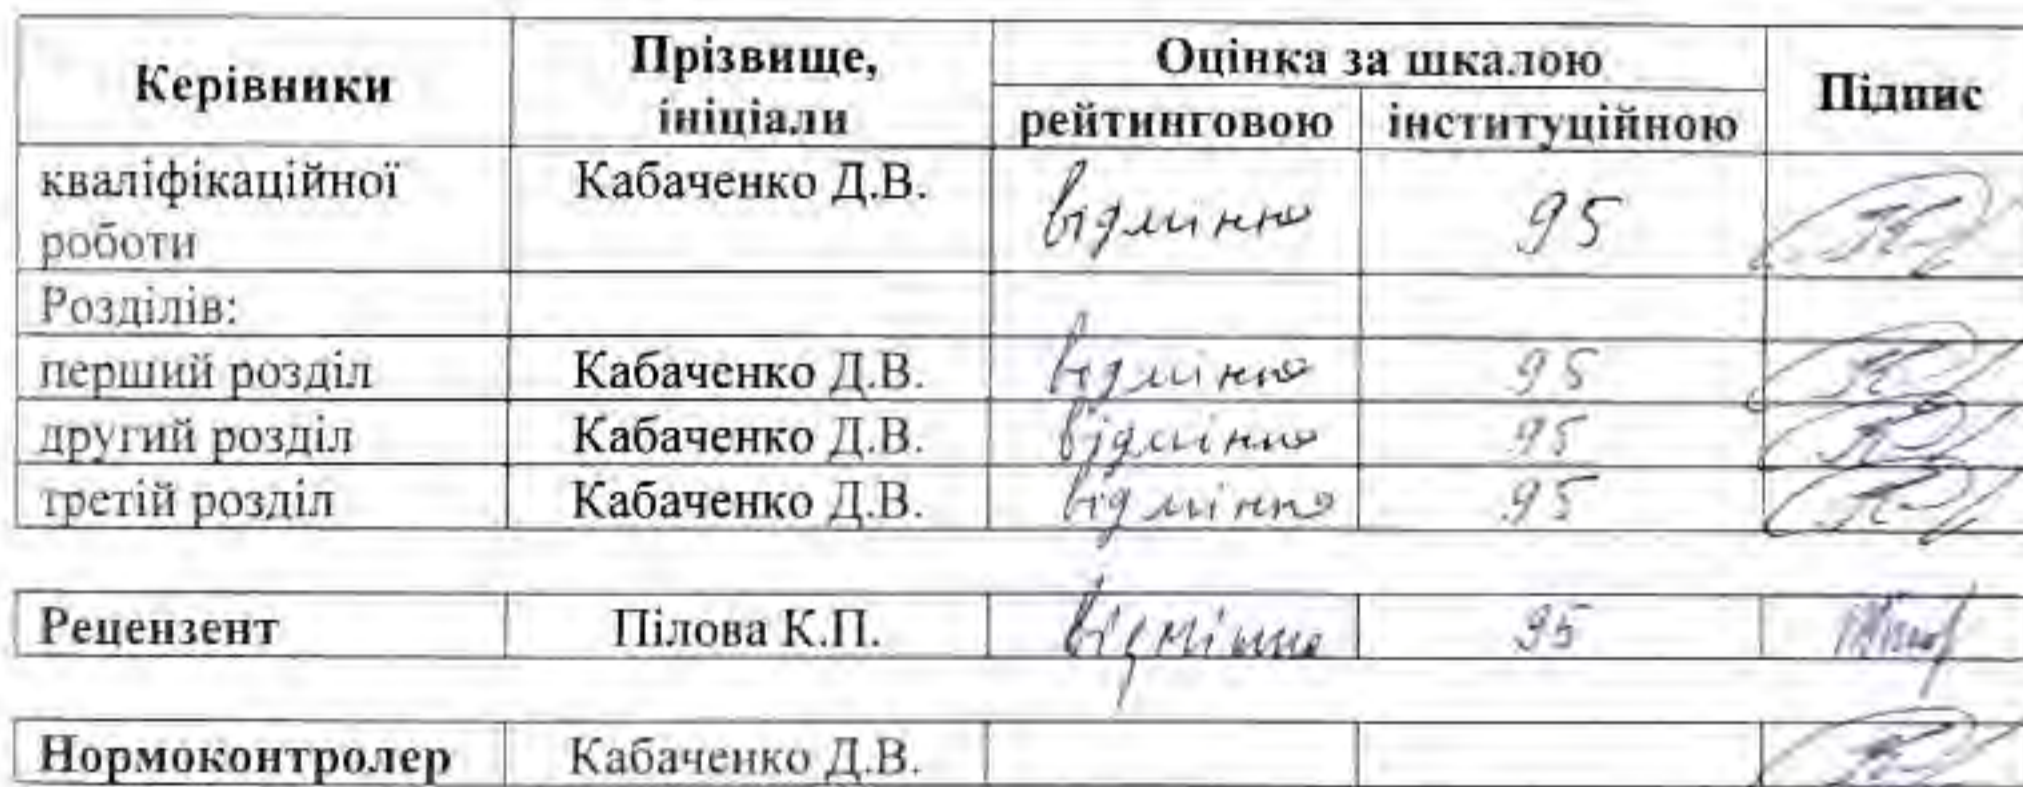 Керівники Прізвище, ініціали Оцінка за шкалою Підпис
рейтинговою інституційною
кваліфікаційної роботи Кабаченко Д.В. відмінно 95
Розділів:
перший розділ Кабаченко Д.В. відмінно 95
другий розділ Кабаченко Д.В. відмінно 95
третій розділ Кабаченко Д.В. відмінно 95
Рецензент Пілова К.П. відмінно 95
Нормоконтролер Кабаченко Д.В.